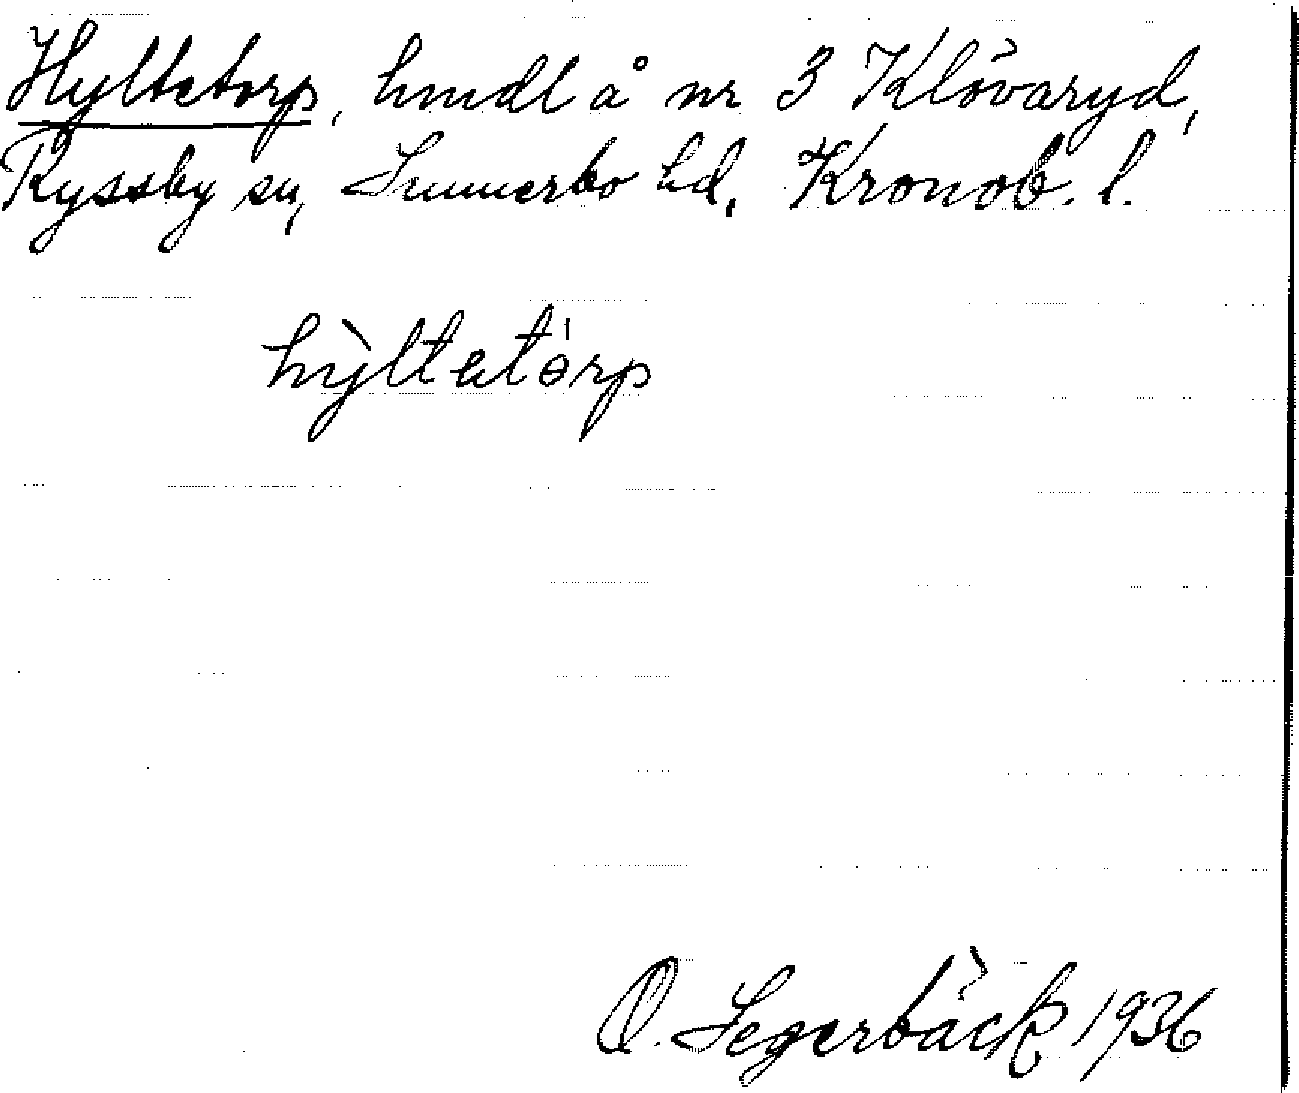 Hyltetorp, hmdl å nr 3 Klövaryd,
Ryssby sn, Sunnerbo hd, Kronob. l.
hỳltetórp
O. Segerbäck 1936